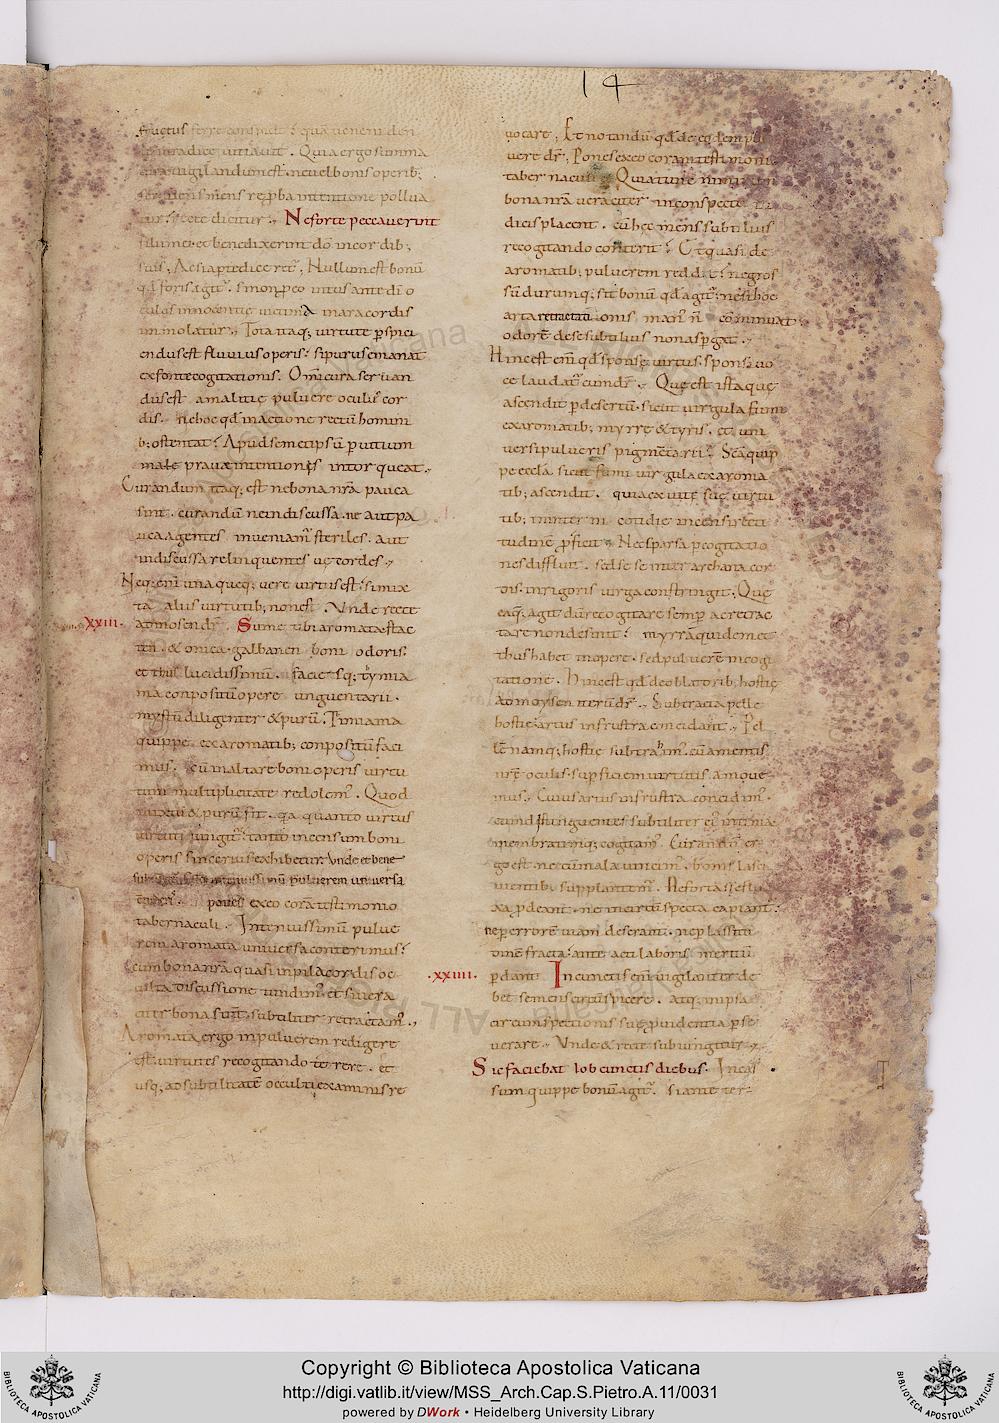 14
fructus ferre conspicit? qua veneni den
te in radice vitiavit . Quia ergo summa
cura vigilandum est . ne vel bonis operib;
serviens mens reproba intentione pollua
tur? recte dicitur . Ne forte peccaverint
filii mei et benedixerint dõ in cordib;
suis ; Ac si aptè dicer&; Nullum est bonũ
qđ foris agit~ . si non p eo intus ante dĩ o
culos innocentię victima in ara cordis
immolatur ; Tota itaq; virtute pspici
endus est fluvius operis? si purus emanat
ex fonte cogitationis . Omi cura servan
dus est a malitię pulvere oculus cor
dis . ne hoc qđ in actione rectũ homini
b; ostentat? Apud semetipsũ p vitium
male pravae intentionis intorqueat ;
Curandum itaq; est ne bona nr̃a pauca
sint . curandũ ne indiscussa . ne aut pa
uca agentes inveniam~ steriles . aut
indiscussa relinquentes vęcordes ;
Neq; eni una queq; vere virtus est? si mix
ta aliis virtutib; non est . Unde recte
xxiii.
ad mosen dr̃ . Sume tibi aromata stac
ten . & onica . galbanen boni odoris?
et thus lucidissimũ . facies q; tymia
ma conpositũ opere unguentarii .
mystũ diligenter & purũ . Timiama
quippe ex aromatib; conpositũ faci
mus . cũ in altare boni operis virtu
tum multiplicitate redolem~ . Quod
mixtũ & purũ fit . qa quanto virtus
virtuti iungit~? tanto incensum boni
operis sincerius exhibetur Unde et bene
pones ex eo corã testimonio
tabernaculi . In tenuissimũ pulve
rem aromata universa conterimus?
cum bona nr̃a quasi in pila cordis oc
culta discussione tundim~ et si vera
citer bona sunt subtiliter retractam~ .
Aromata ergo in pulverem redigere
est? virtutes recogitando terere . et
usq; ad subtilitatẽ occulti examinis re
vocare ; Et notandũ qđ de eodem pul
vere dr̃ ; Pones ex eo coram testimoni
tabernaculi ; Quia tunc nimirum
bona nr̃a veraciter in conspectu iu
dicis placent . cũ hęc mens subtilius
recogitando conterit? Et quasi de
aromatib; pulverem reddit? ne gros
sũ durumq; sit bonũ qđ agit~? ne si hoc
arta retractationis man~ ñ comminuat
odorẽ de se subtilius non aspgat ;
Hinc est eni qđ sponsę virtus sponsi vo
ce laudat~ cum dr̃ . Quę est ista quę
ascendit p desertũ . sicut virgula fumi
ex aromatib; myrrę & turis . et uni
versi pulveris pigmẽtarii? Scã quip
pe eccła sicut fumi virgula ex aroma
tib; ascendit . quia ex vitę suę virtu
tib; in interni cotidie incensi recti
tudinẽ pficit . Nec sparsa p cogitatio
nes diffluit . sed se se inter archana cor
dis . in rigoris virga constringit . Quę
eaq; agit dũ recogitare semp ac retrac
tare non desinit? myrrã quidem et
thus habet in opere . sed pulverẽ in cogi
tatione . Hinc est qđ de oblatorib; hostię
ad moysen iterũ dr̃ . Subtracta pelle
hostię? artus in frustra concidant . Pel
lẽ namq; hostię subtraim~ . cũ a mentis
nr̃ę oculis . supficiem virtutis amove
mus . Cuius artus in frustra concidim~ .
cum distinguentes subtiliter ei~ intima
membratimq; cogitam~ . Curandũ er
go est . ne cũ mala vincim~ . bonis lasci
vientib; supplantem~ . Ne forte si eflu
xa pdeant . ne incircũspecta capiant .
ne p errorẽ viam deserant . ne p lassitu
dine fracta? ante acti laboris meritũ
xxiiii.
pdant . In cunctis eni vigilanter de
bet se mens circũspicere . atq; in ipsa
circumspectionis suę pvidentia pse
verare . Unde & recte subiungitur .
Sic faciebat Iob cunctis diebus . Incas
sum quippe bonũ agit~ . si ante ter-
Copyright © Biblioteca Apostolica Vaticana
http://digi.vatlib.it/view/MSS_Arch.Cap.S.Pietro.A.11/0031
powered by DWork • Heidelberg University Library
BIBLIOTECA APOSTOLICA VATICANA
BIBLIOTECA APOSTOLICA VATICANA